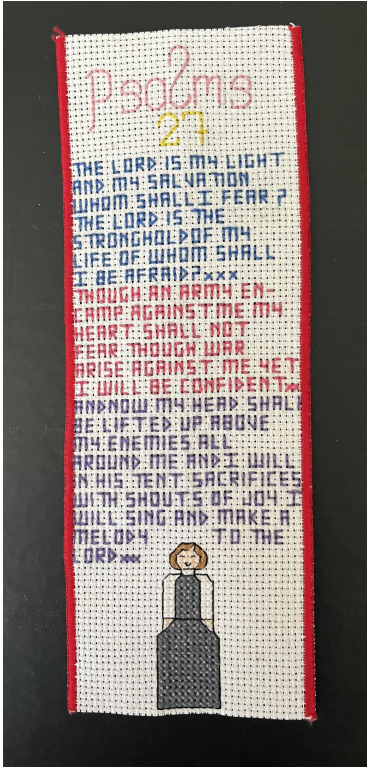 Psalms
27
THE LORD IS MY LIGHT
AND MY SALVATION
WHOM SHALL I FEAR?
THE LORD IS THE
STRONGHOLD OF MY
LIFE OF WHOM SHALL
I BE AFRAID?xxx
THOUGH AN ARMY EN-
CAMP AGAINST ME MY
HEART SHALL NOT
FEAR THOUGH WAR
ARISE AGAINST ME YET
I WILL BE CONFIDENT xx
AND NOW MY HEAD SHALL
BE LIFTED UP ABOVE
MY ENEMIES ALL
AROUND ME AND I WILL
IN HIS TENT SACRIFICES
WITH SHOUTS OF JOY I
WILL SING AND MAKE A
MELODY TO THE
LORD xxx